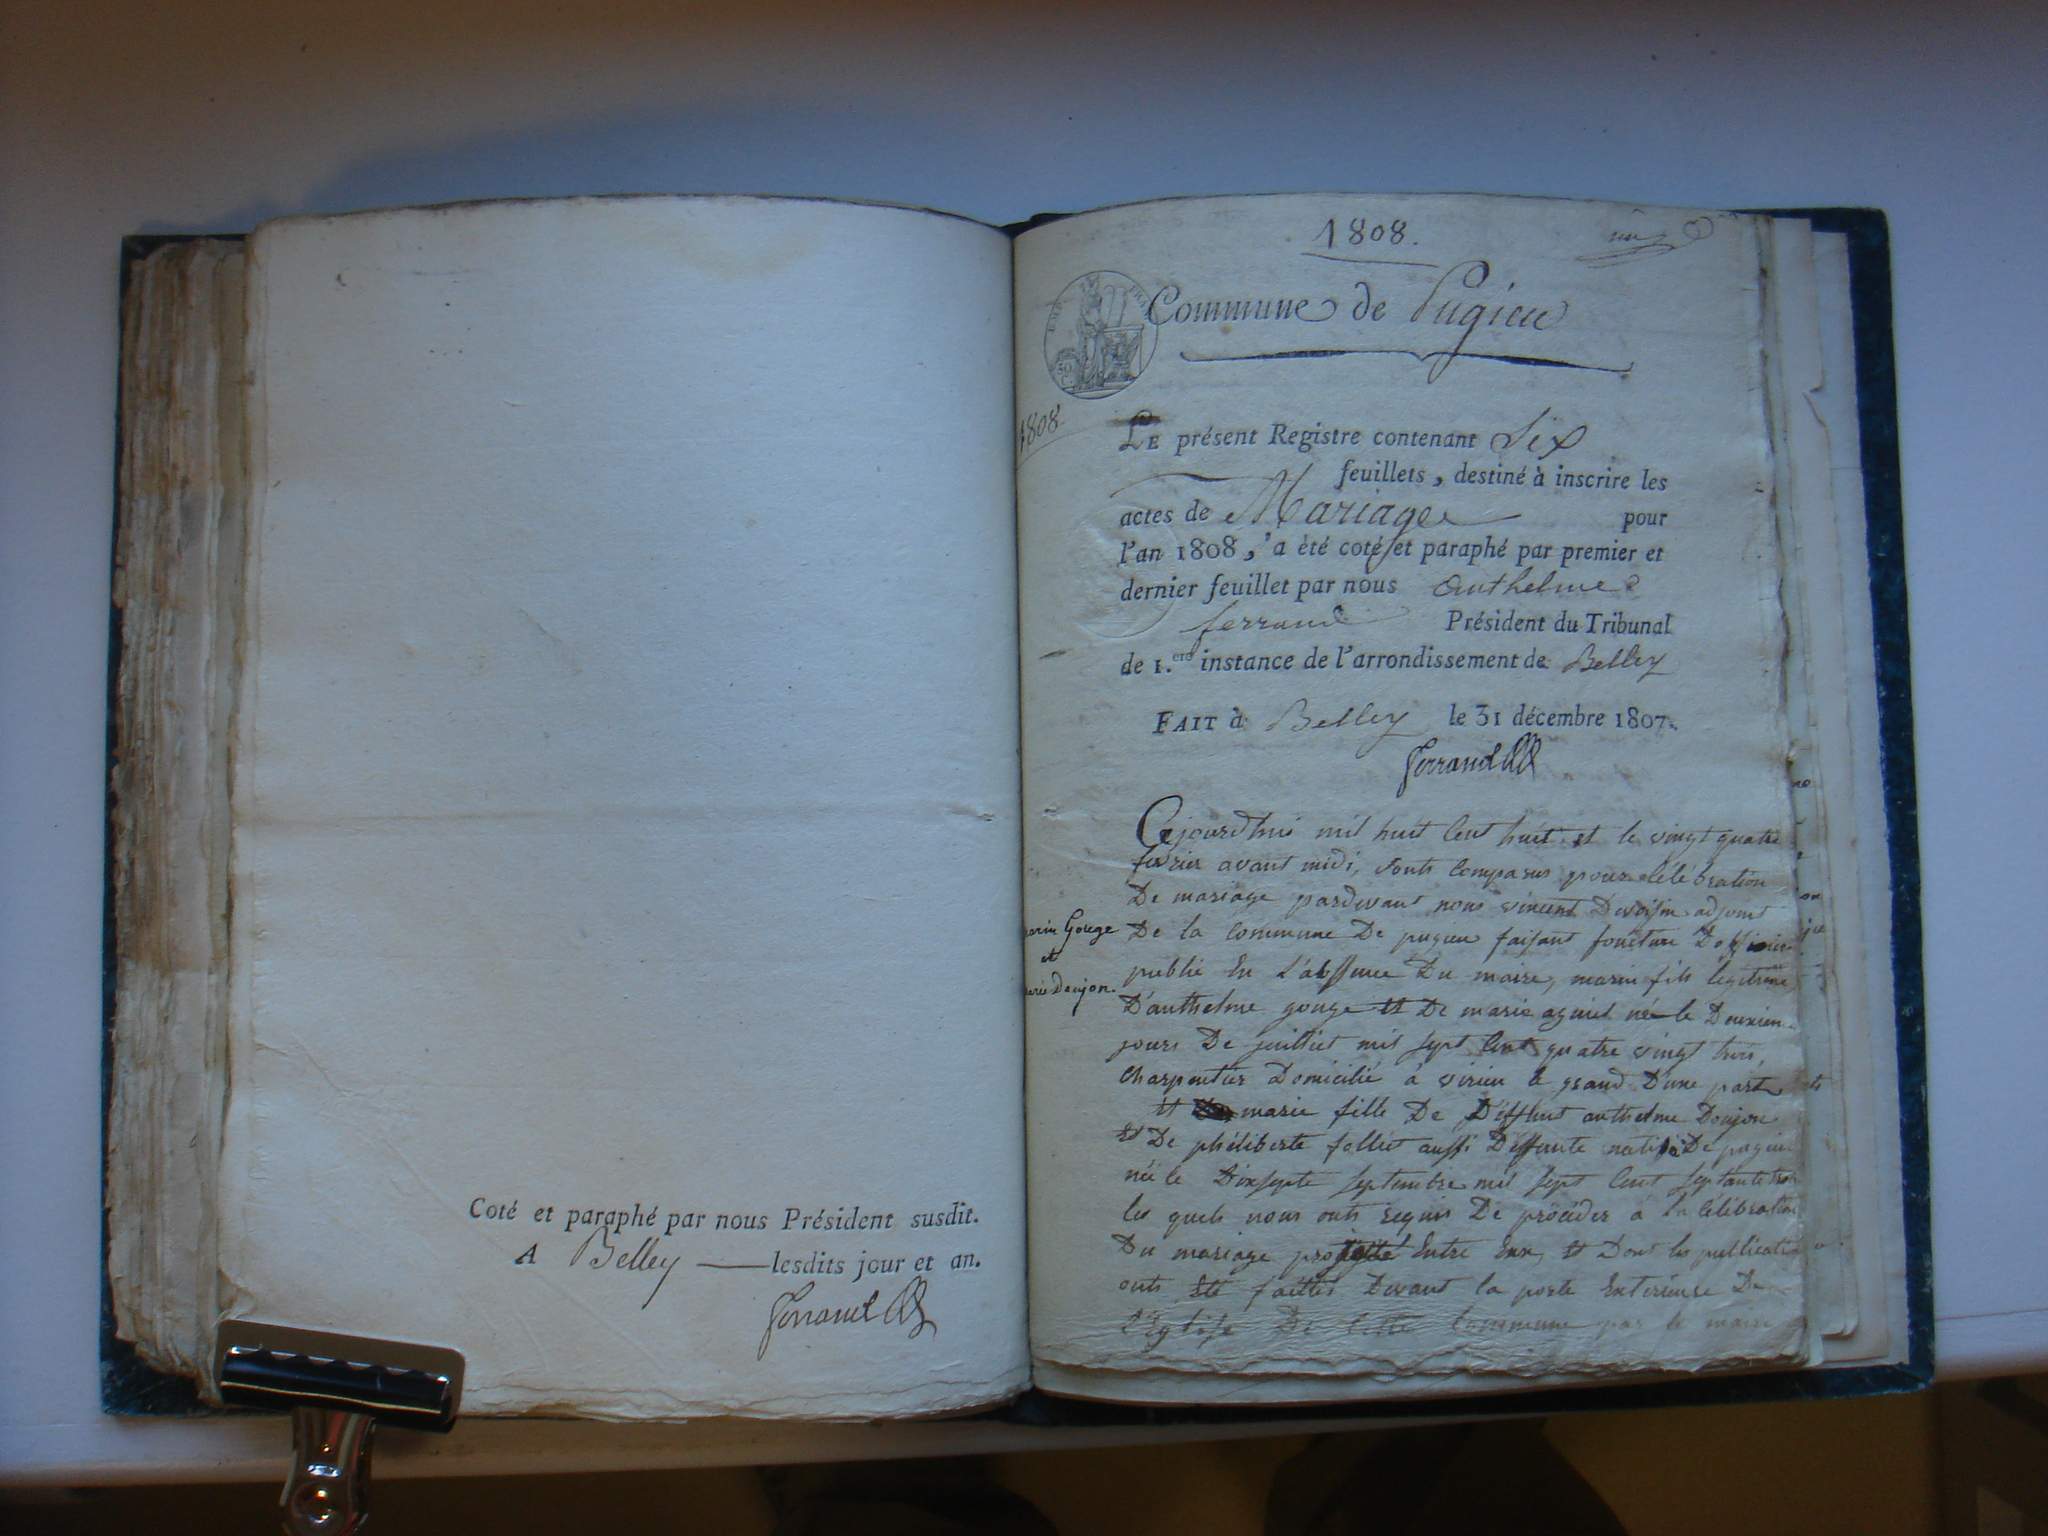 Coté et paraphé par nous Président susdit.
A Belley lesdits jour et an.
Ferrand
1808.
Commune de Pugieu
EMP. FRA
50 C.
1808
LE présent Registre contenant Six
feuillets, destiné à inscrire les
actes de Mariage pour
l'an 1808, a été coté et paraphé par premier et
dernier feuillet par nous Anthelme
ferrand Président du Tribunal
de 1.ere instance de l'arrondissement de Belley
FAIT à Belley le 31 décembre 1807.
Ferrand
Cejourd'hui mil huit Cent huit et le vingt quatre
fevrier avant midi, sonts Comparus pour Célébration
De mariage pardevant nous vincent Devoisin adjoint
De la Commune De pugieu faisant fonction D'officier
public En L'absence Du maire, marin fils legitime
D'anthelme gouge et De marie né le Deuxiem
jours De juilliet mil sept Cent quatre vingt trois,
Charpentier Domicilié à virieu le grand D'une part
et marie fille De Deffunt anthelme Doujon
Et De phéliberte folliet aussi Deffunte native De pugieu
née le Dixsepte septembre mil sept Cent septante trois
les quels nous onts requis De procéder à la Célébration
Du mariage projetté Entre Eux, et Dont les publications
onts été faittes Devant la porte Exterieure De
L'Eglise De Cette Commune par le maire
marin Gouge
et
marie Doujon.